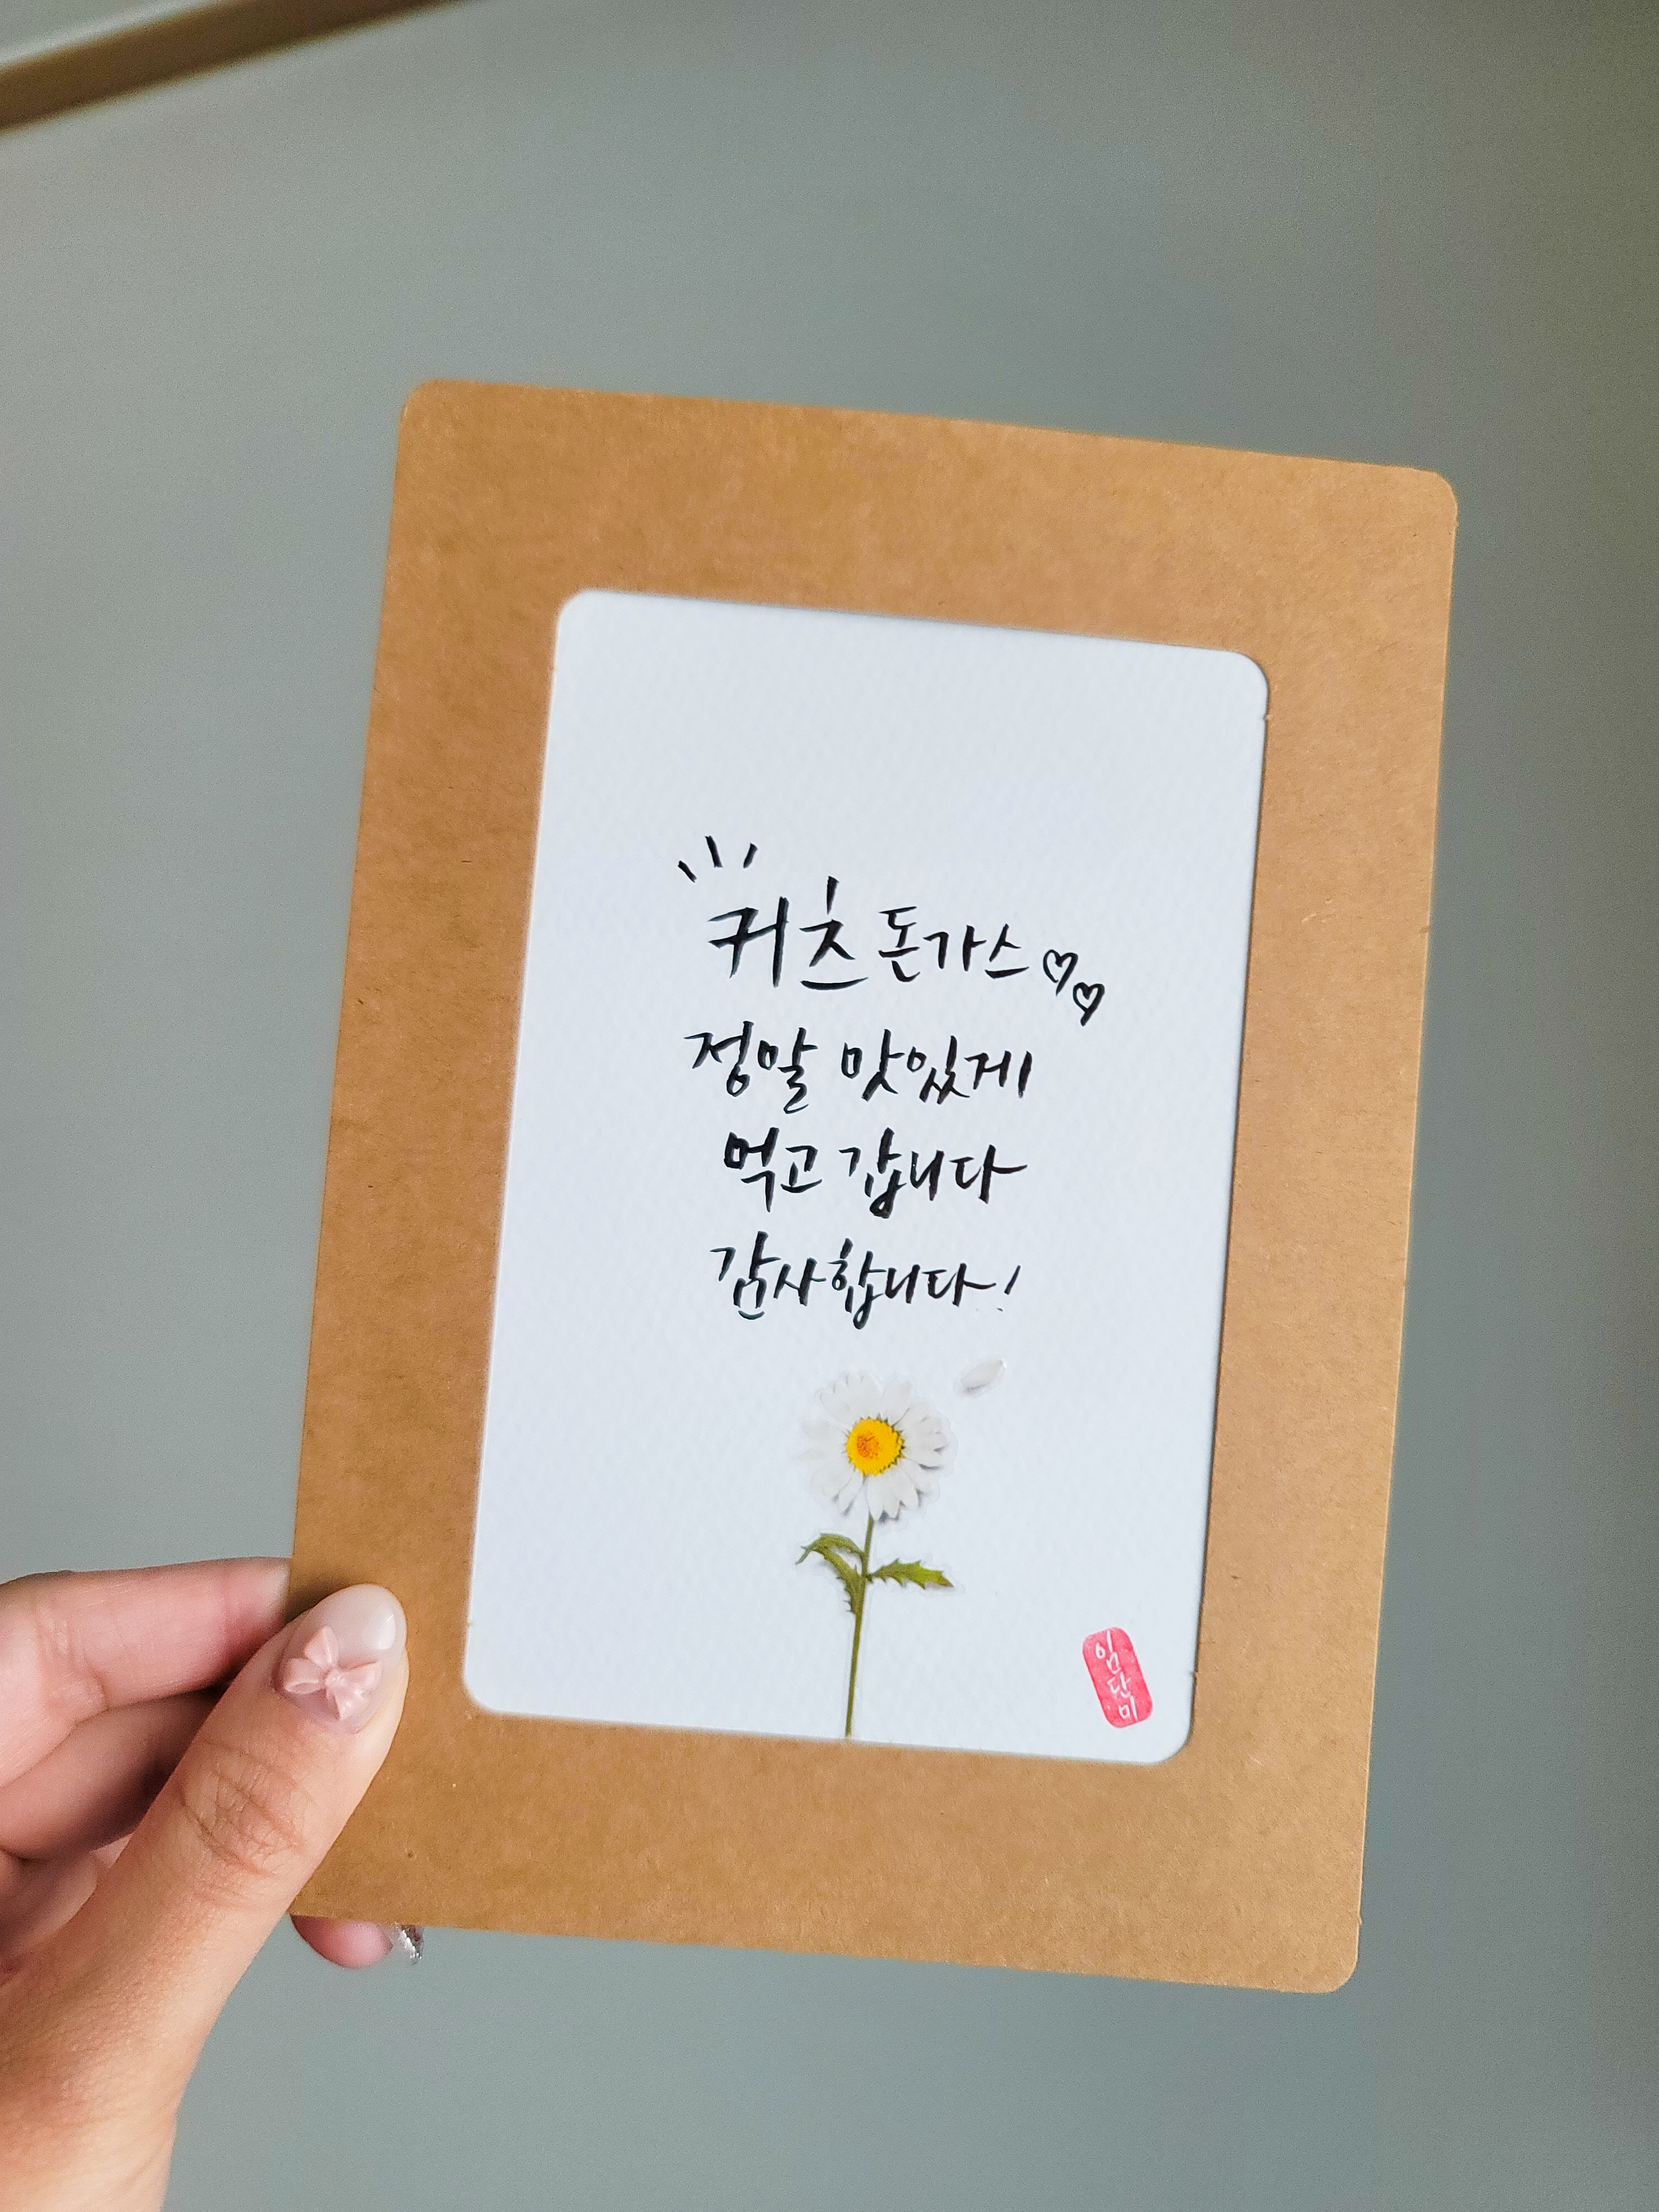 귀츠 돈가스♡♡
정말 맛있게
먹고 갑니다
감사합니다!
임단미